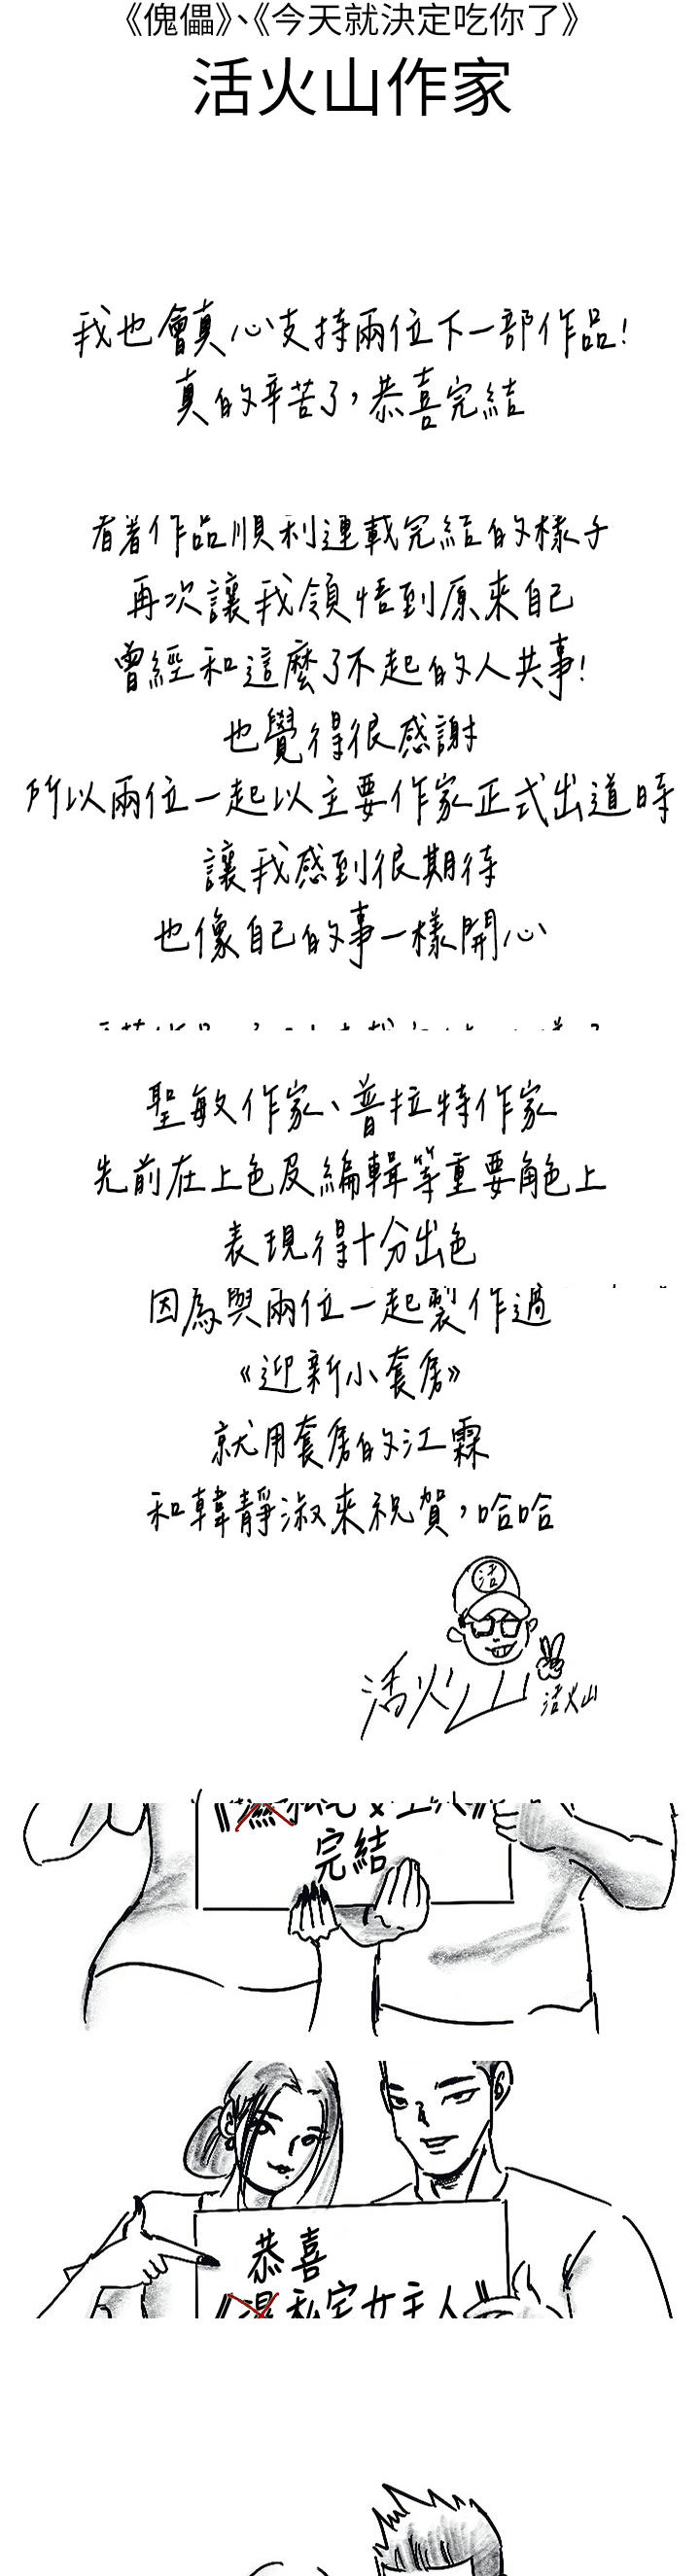 《傀儡》、《今天就決定吃你了》
活火山作家
我也會真心支持兩位下一部作品!
真的辛苦了，恭喜完結
看著作品順利連載完結的樣子
再次讓我領悟到原來自己
曾經和這麼了不起的人共事!
也覺得很感謝
所以兩位一起以主要作家正式出道時
讓我感到很期待
也像自己的事一樣開心
聖敏作家、普拉特作家
先前在上色及編輯等重要角色上
表現得十分出色
因為與兩位一起製作過
《迎新小套房》
就用套房的江霖
和韓靜淑來祝賀，哈哈
活
活火山
活火山
完結
恭喜
私宅女主人》